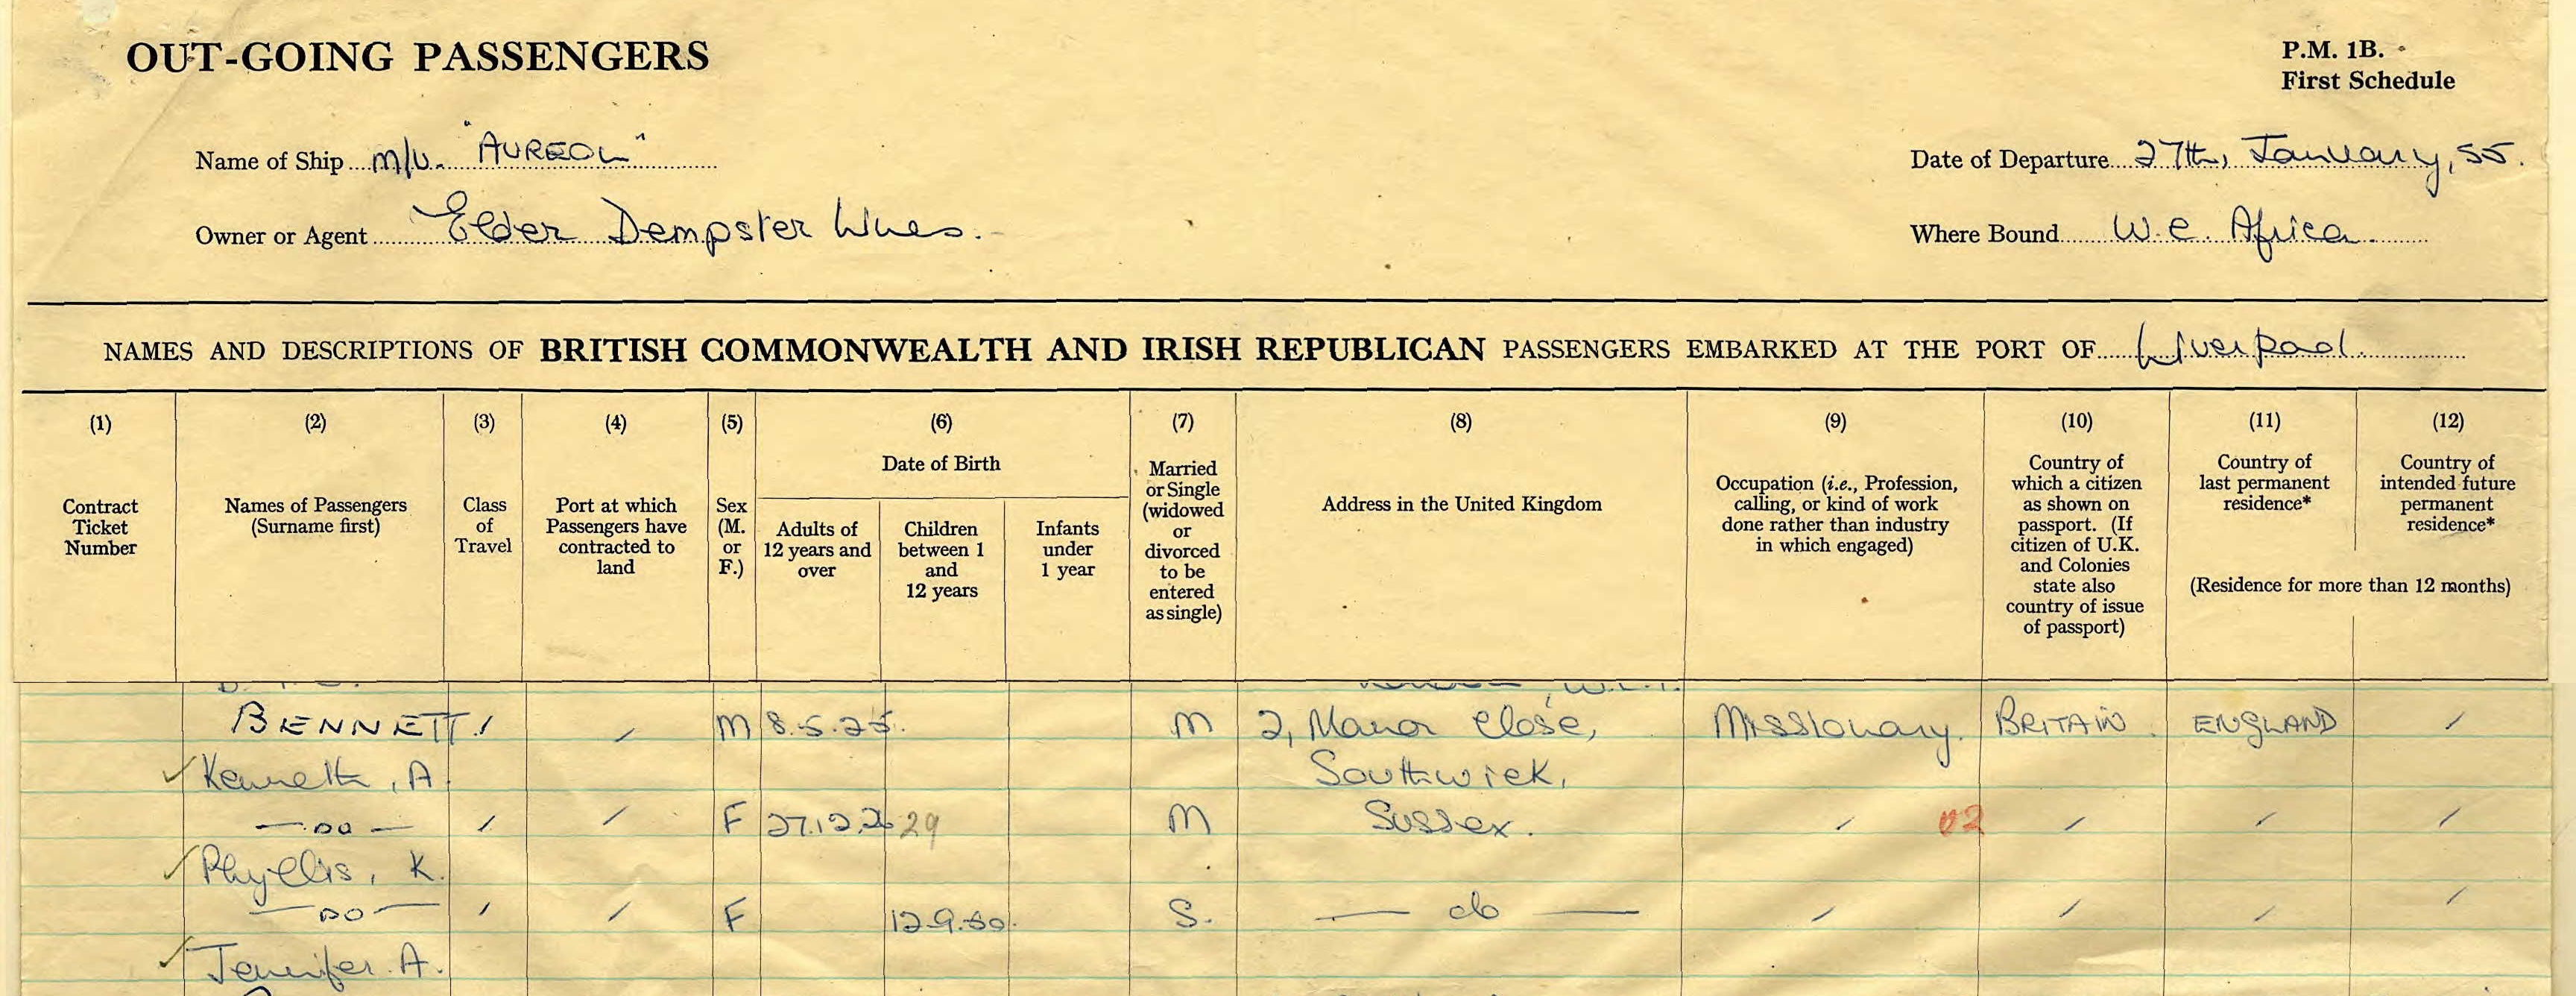 OUT-GOING PASSENGERS
P.M. 1B.
First Schedule
Name of Ship m/v. "AUREOL"
Date of Departure 27th, January, 55.
Owner or Agent Elder Dempster Lines.
Where Bound W.C. Africa.
NAMES AND DESCRIPTIONS OF BRITISH COMMONWEALTH AND IRISH REPUBLICAN PASSENGERS EMBARKED AT THE PORT OF Liverpool
(1) (2) (3) (4) (5) (6) (7) (8) (9) (10) (11) (12)
Contract
Ticket
Number
Names of Passengers
(Surname first)
Class
of
Travel
Port at which
Passengers have
contracted to
land
Sex
(M.
or
F.)
Date of Birth
Adults of
12 years and
over
Children
between 1
and
12 years
Infants
under
1 year
Married
or Single
(widowed
or
divorced
to be
entered
as single)
Address in the United Kingdom
Occupation (i.e., Profession,
calling, or kind of work
done rather than industry
in which engaged)
Country of
which a citizen
as shown on
passport. (If
citizen of U.K.
and Colonies
state also
country of issue
of passport)
Country of
last permanent
residence*
Country of
intended future
permanent
residence*
(Residence for more than 12 months)
BENNETT / / M 8.5.25. M 2, Manor Close, Missionary. BRITAIN. ENGLAND /
✓ Kenneth, A. Southwick,
— DO — / / F 27.12.2 29 M Sussex. / 02 / / /
✓ Phyllis, K.
— DO — / / F 12.9.50. S. — do — / / / /
✓ Jennifer. A.